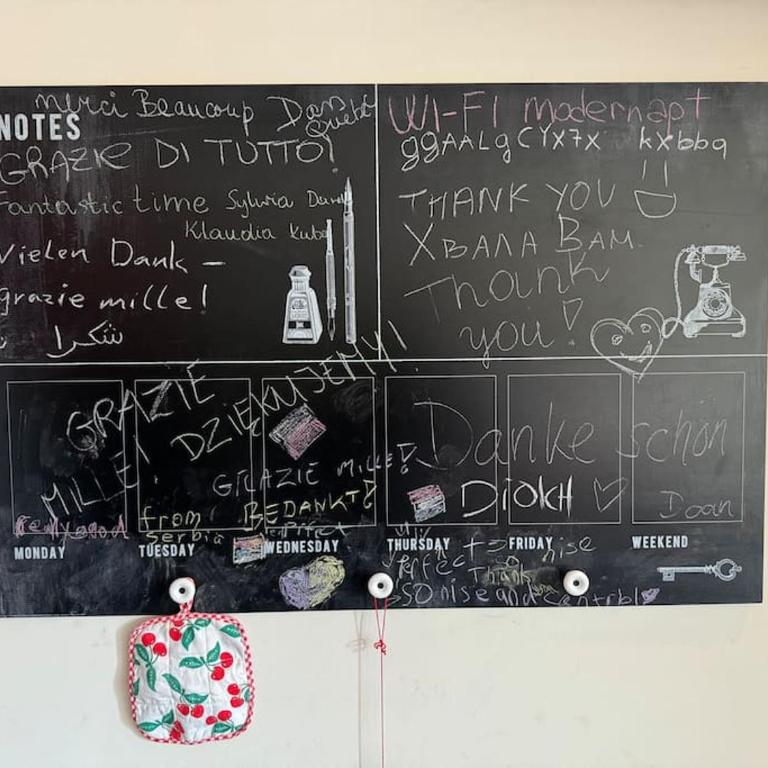 merci Beaucoup
NOTES
GRAZIE DI TUTTO!
Fantastic time Sylwia
Klaudia Kuba
Vielen Dank -
grazie mille!
شكرا
WI-FI modernapt
ggAALgCYX7X kxbbq
THANK YOU
ХВАЛА ВАМ
Thank
you!
GRAZIE
MILLE!
DZIĘKUJEMY!
GRAZIE MILLE!
Danke schön
DiOKH
Doan
from
Serbia
BEDANKT!
Perfect
nise
Thank
SO nise and
MONDAY
TUESDAY
WEDNESDAY
THURSDAY
FRIDAY
WEEKEND